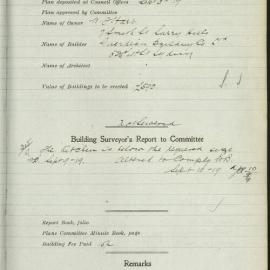 Plan deposited at Council Offices Sept 3rd 19
Plan approved by Committee
Name of Owner
Smith St Surry Hills
Name of Builder Guardian Building Co
St Sydney
Name of Architect
Value of Buildings to be erected £590
Building Surveyor's Report to Committee
The kitchen is below the required size
Sept 9-19. Altered to Comply
Sept 10-19
Report Book, folio
Plans Committee Minute Book, page
Building Fee Paid
Remarks